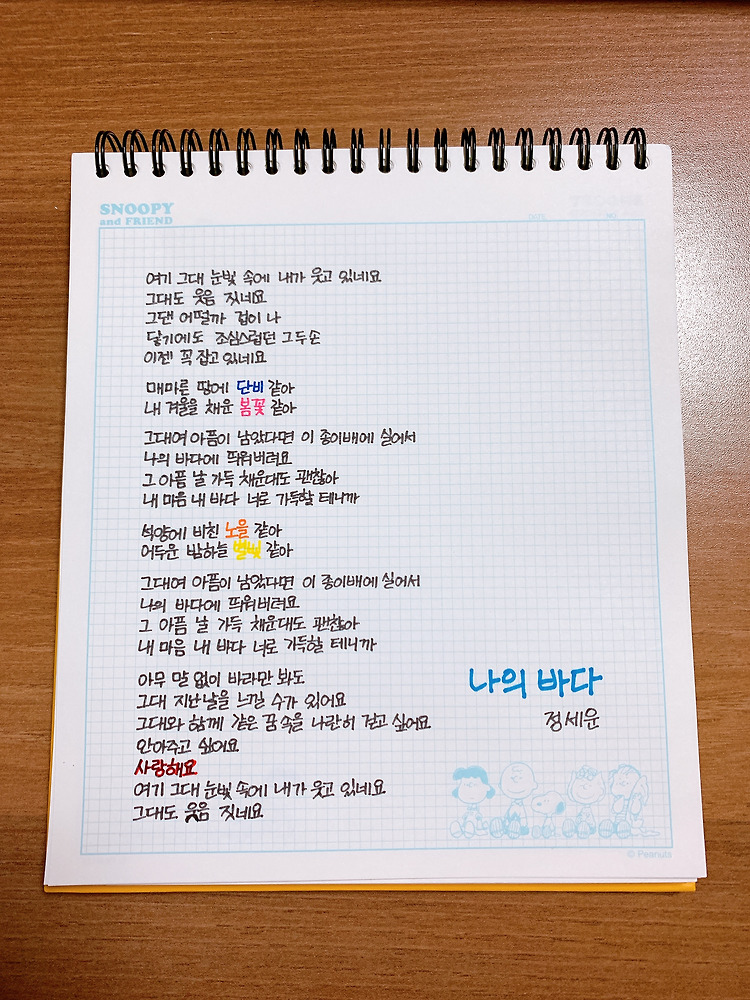 SNOOPY
and FRIEND
DATE
NO.
여기 그대 눈빛 속에 내가 웃고 있네요
그대도 웃음 짓네요
그댄 어떨까 겁이 나
닿기에도 조심스럽던 그 두 손
이젠 꼭 잡고 있네요
메마른 땅에 단비 같아
내 겨울을 채운 봄꽃 같아
그대여 아픔이 남았다면 이 종이배에 실어서
나의 바다에 띄워버려요
그 아픔 날 가득 채운대도 괜찮아
내 마음 내 바다 너로 가득할 테니까
석양에 비친 노을 같아
어두운 밤하늘 별빛 같아
그대여 아픔이 남았다면 이 종이배에 실어서
나의 바다에 띄워버려요
그 아픔 날 가득 채운대도 괜찮아
내 마음 내 바다 너로 가득할 테니까
아무 말 없이 바라만 봐도
그대 지난날을 느낄 수가 있어요
그대와 함께 같은 꿈 속을 나란히 걷고 싶어요
안아주고 싶어요
사랑해요
여기 그대 눈빛 속에 내가 웃고 있네요
그대도 웃음 짓네요
나의 바다
정세운
© Peanuts